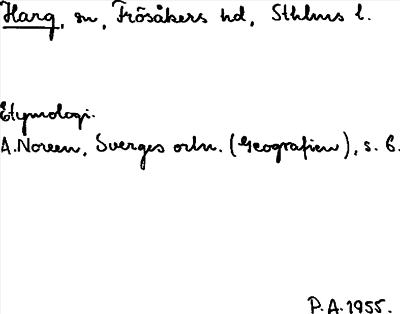 Harg, sn, Frösåkers hd, Sthlms l.
Etymologi.
A. Noreen, Sverges ortn. (Geografien), s. 6.
P.A. 1955.